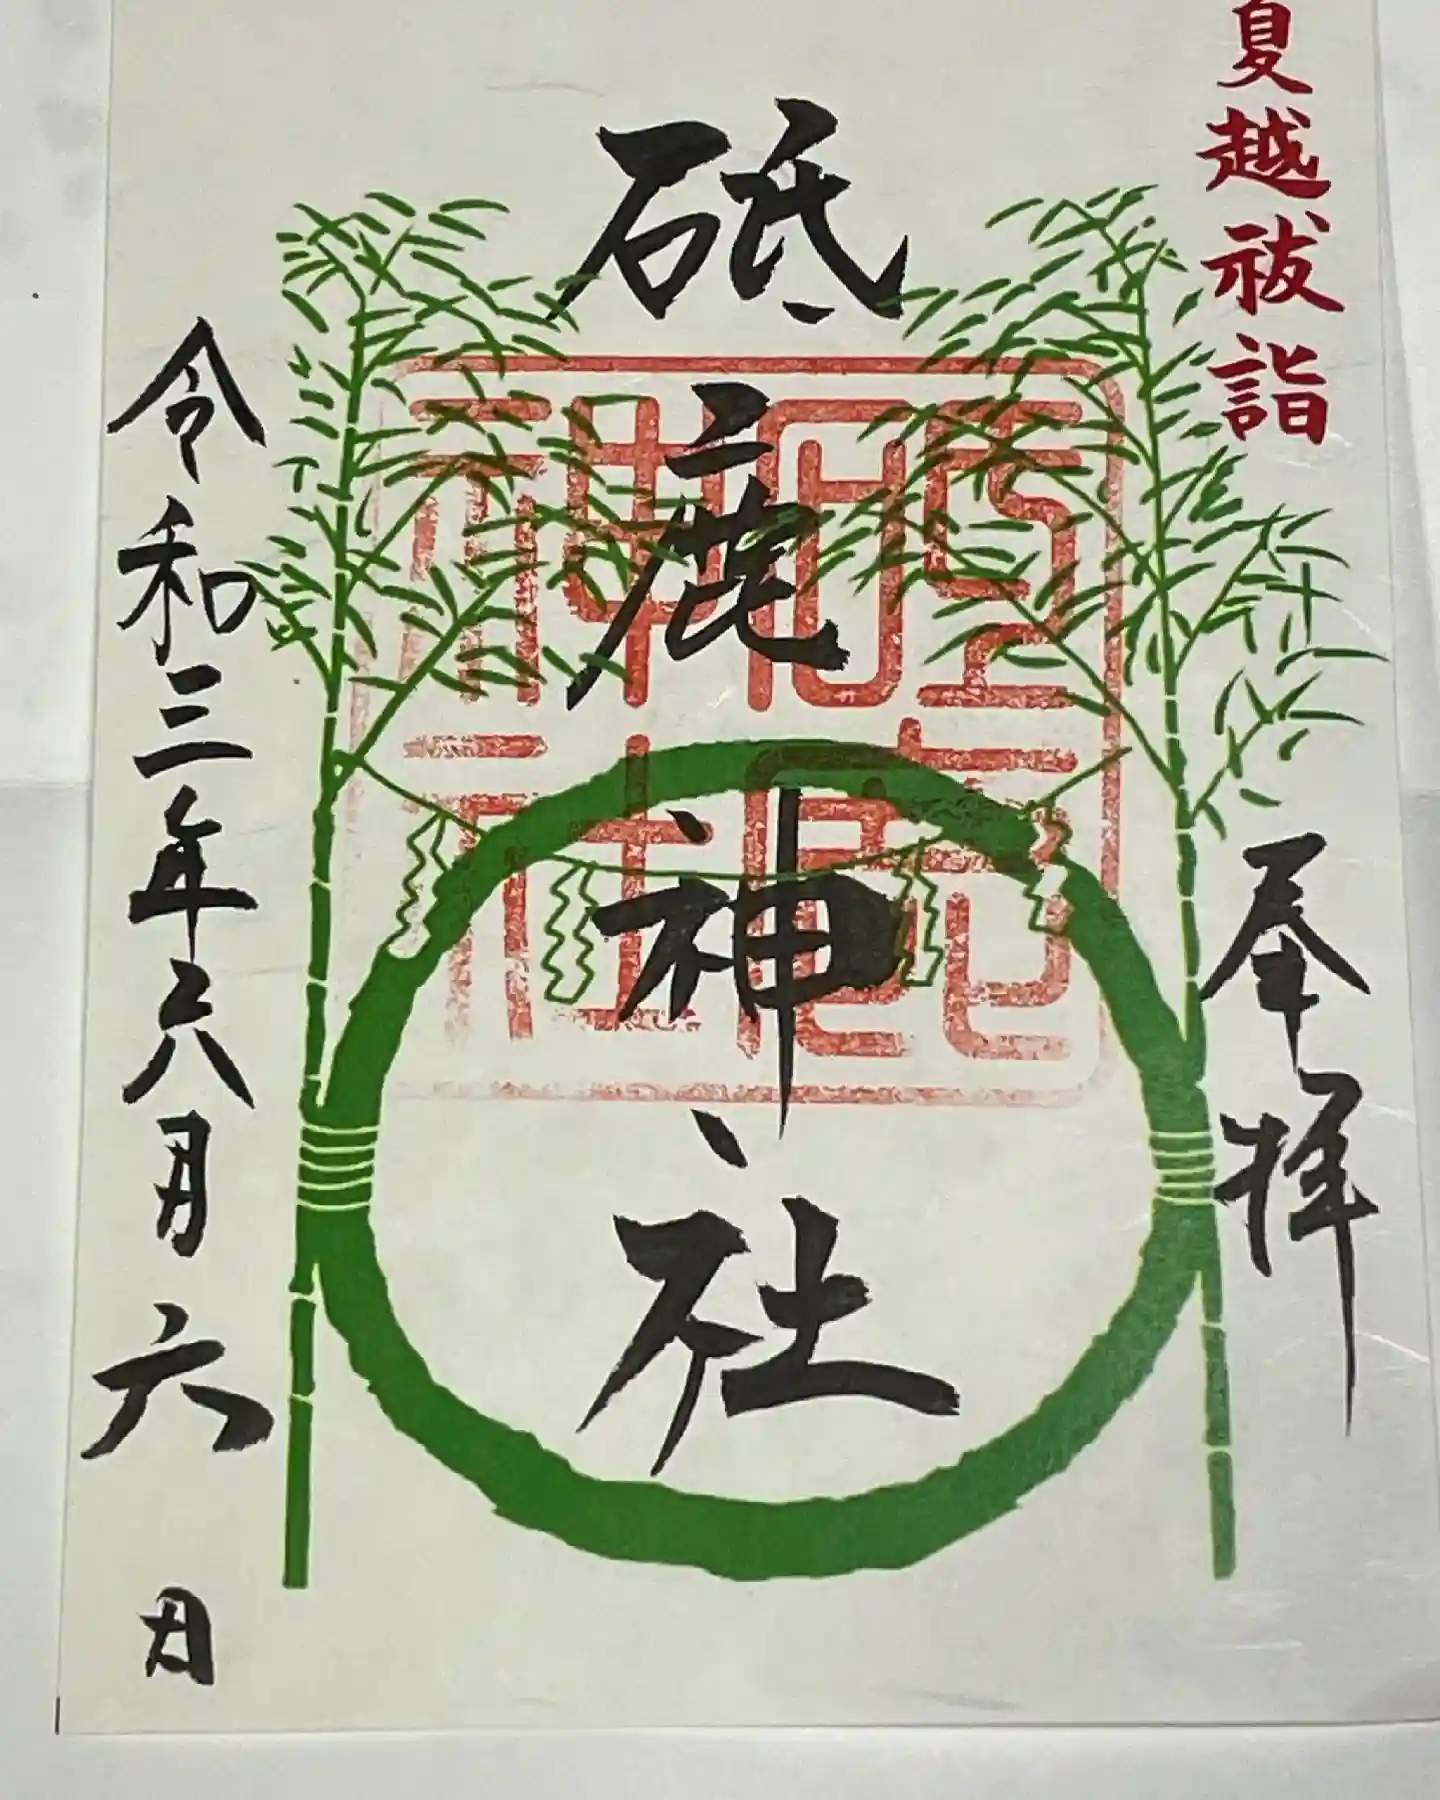 夏越祓詣
奉拝
砥鹿神社
砥鹿神社
令和三年六月六日